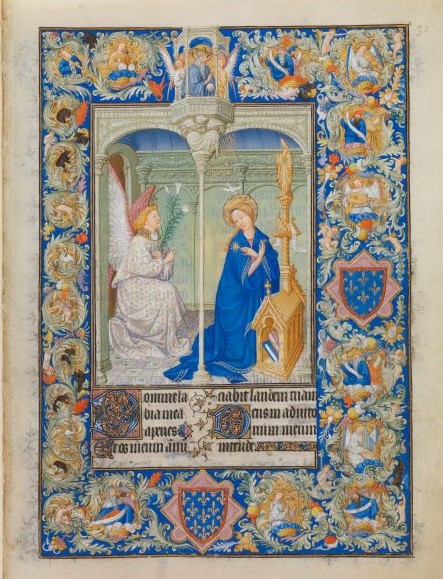 30
Domine la
bia mea
aperies
Et os meum annu
ciabit laudem tuam
Deus in adiuto
rium meum
intende